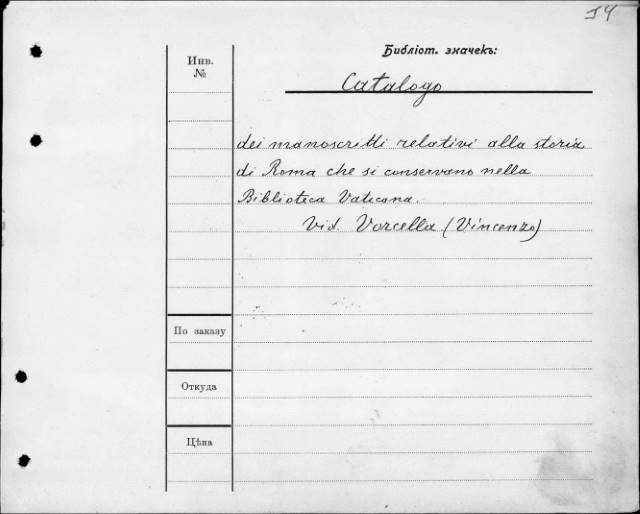 54
Библіот. значекъ:
Инв.
№
Catalogo
dei manoscritti relativi alla storia
di Roma che si conservano nella
Biblioteca Vaticana.
Vid. Vorcella (Vincenzo)
По заказу
Откуда
Цѣна